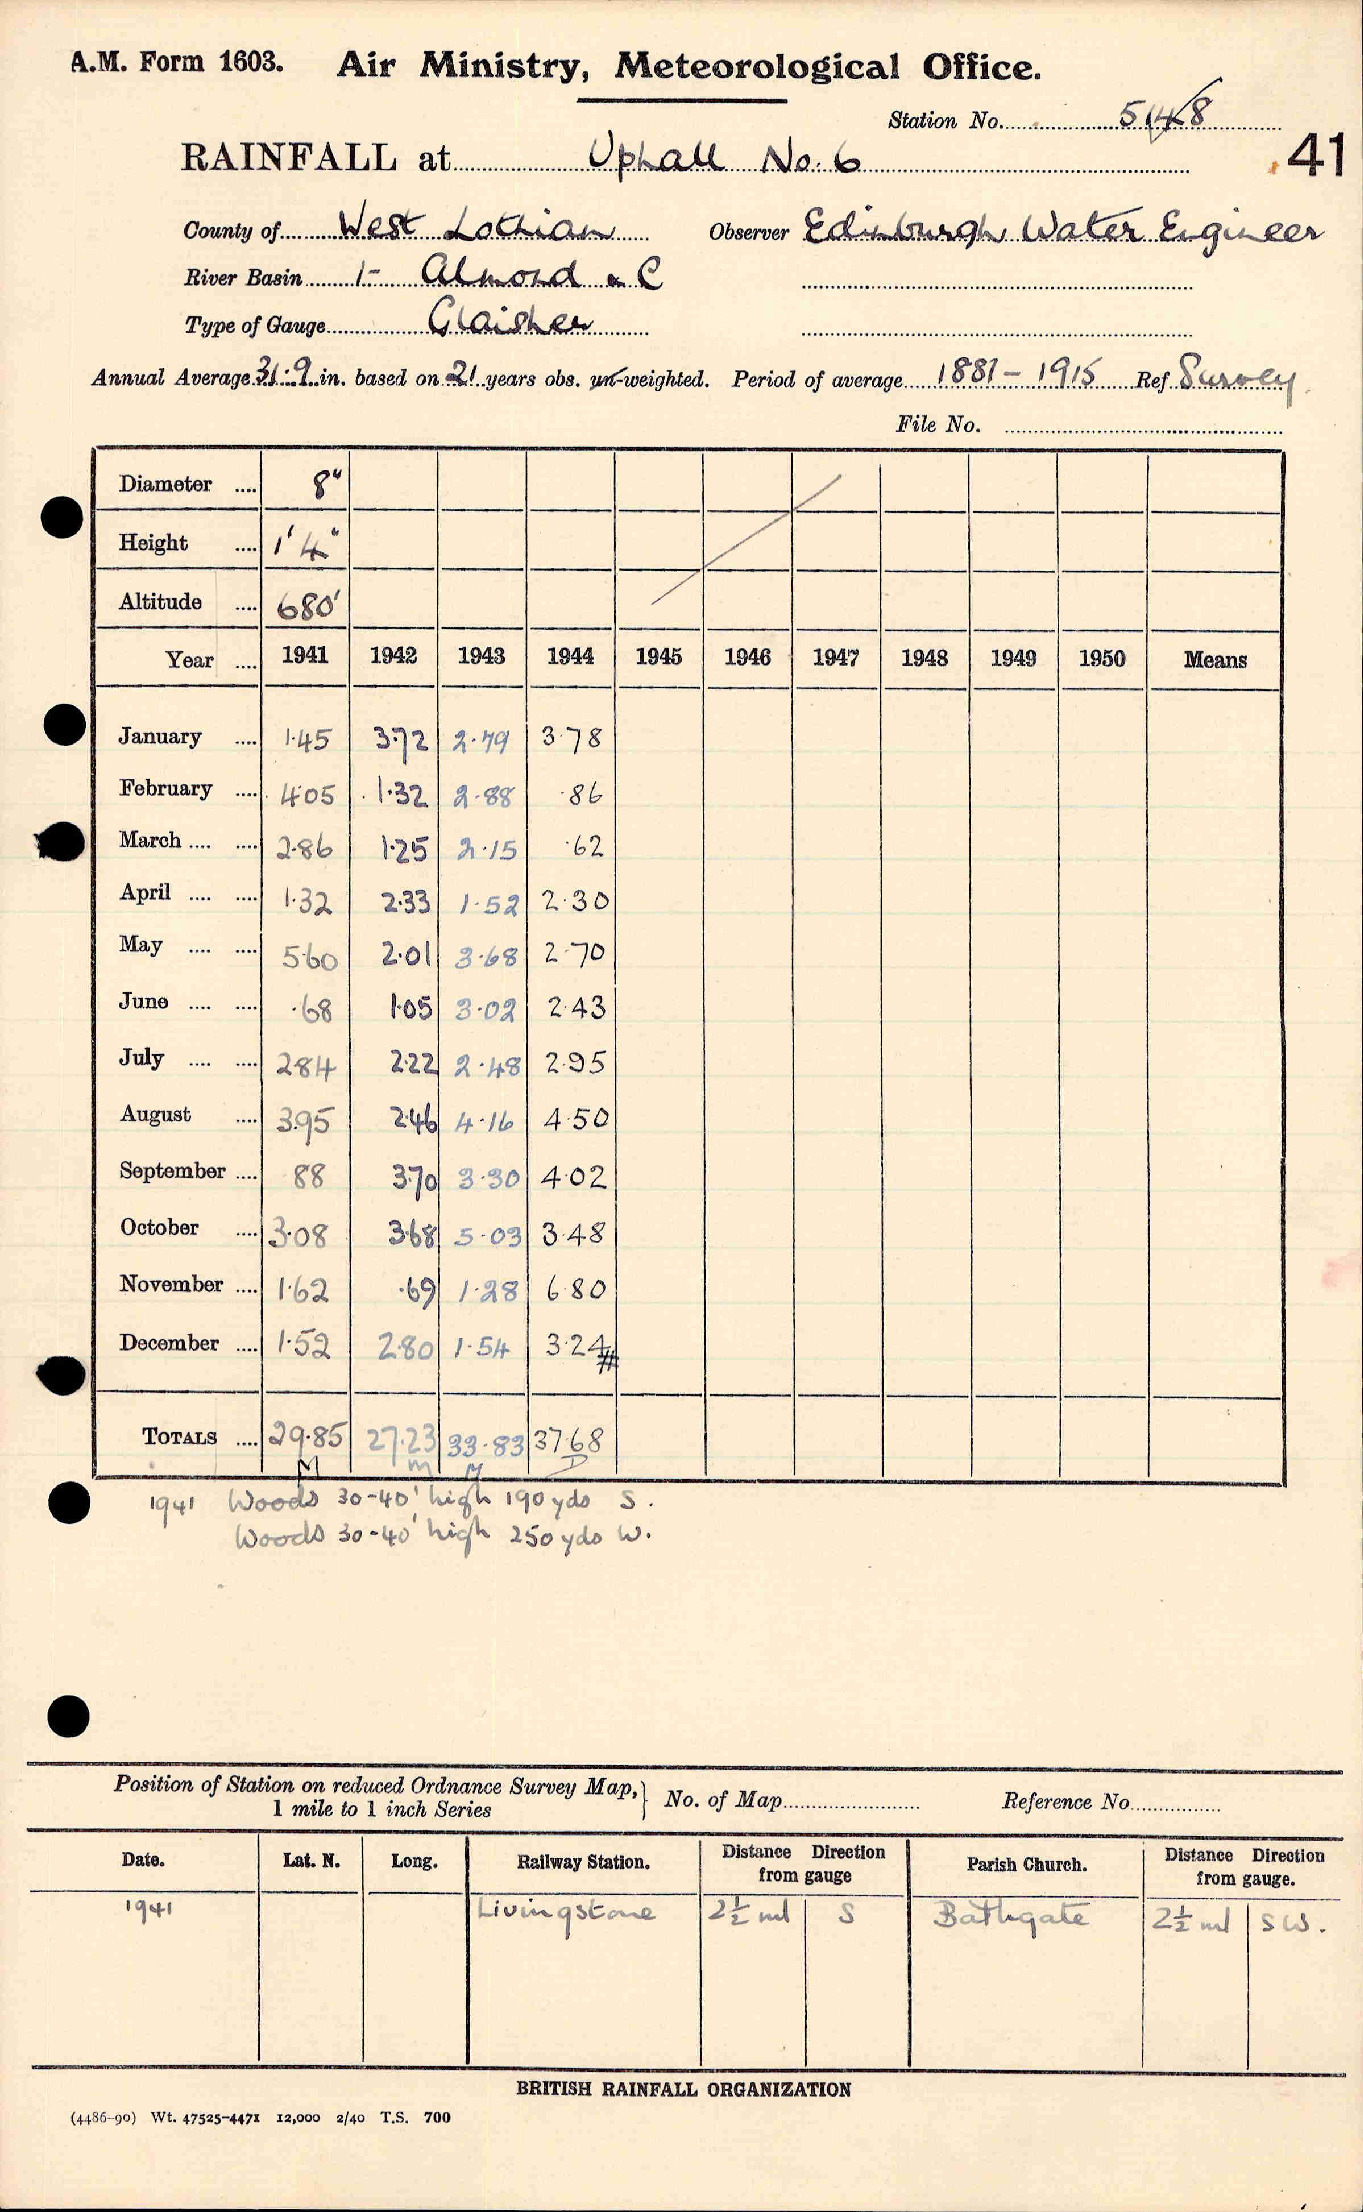 A.M. Form 1603. Air Ministry, Meteorological Office.
Station No. 548
41
RAINFALL at Uphall No. 6
County of West Lothian Observer Edinburgh Water Engineer
River Basin 1- Almond & C
Type of Gauge Glaisher
Annual Average 31.9 in. based on 21 years obs. un-weighted. Period of average 1881-1915 Ref Survey
File No.
Diameter .... 8"
Height .... 1'4"
Altitude .... 680'
Year .... 1941 1942 1943 1944 1945 1946 1947 1948 1949 1950 Means
January .... 1.45 3.72 2.79 3.78
February .... 4.05 1.32 2.88 .86
March .... .... 2.86 1.25 2.15 .62
April .... .... 1.32 2.33 1.52 2.30
May .... .... 5.60 2.01 3.68 2.70
June .... .... .68 1.05 3.02 2.43
July .... .... 2.84 2.22 2.48 2.95
August .... 3.95 2.46 4.16 4.50
September .... 88 3.70 3.30 4.02
October .... 3.08 3.68 5.03 3.48
November .... 1.62 .69 1.28 6.80
December .... 1.52 2.80 1.54 3.24 #
TOTALS .... 29.85 27.23 33.83 37.68
M M M D
1941 Woods 30-40' high 190 yds S.
Woods 30-40' high 250 yds W.
Position of Station on reduced Ordnance Survey Map, } No. of Map Reference No.
1 mile to 1 inch Series
Date. Lat. N. Long. Railway Station. Distance Direction from gauge Parish Church. Distance Direction from gauge.
1941 Livingstone 2½ ml S Bathgate 2½ ml SW.
BRITISH RAINFALL ORGANIZATION
(4486-90) Wt. 47525-4471 12,000 2/40 T.S. 700